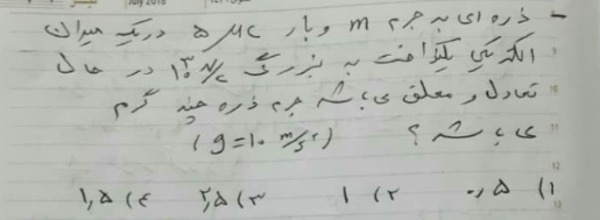 July 2018
- ذره ای به جرم m و بار ۵ μc در یک میدان
الکتریکی یکنواخت به بزرگی ۱۰^۳ N/C در حال
تعادل و معلق می باشد جرم ذره چند گرم
می باشد؟ (g=۱۰ m/s^۲)
۱) ۰٫۵ ۲) ۱ ۳) ۲٫۵ ۴) ۱٫۵